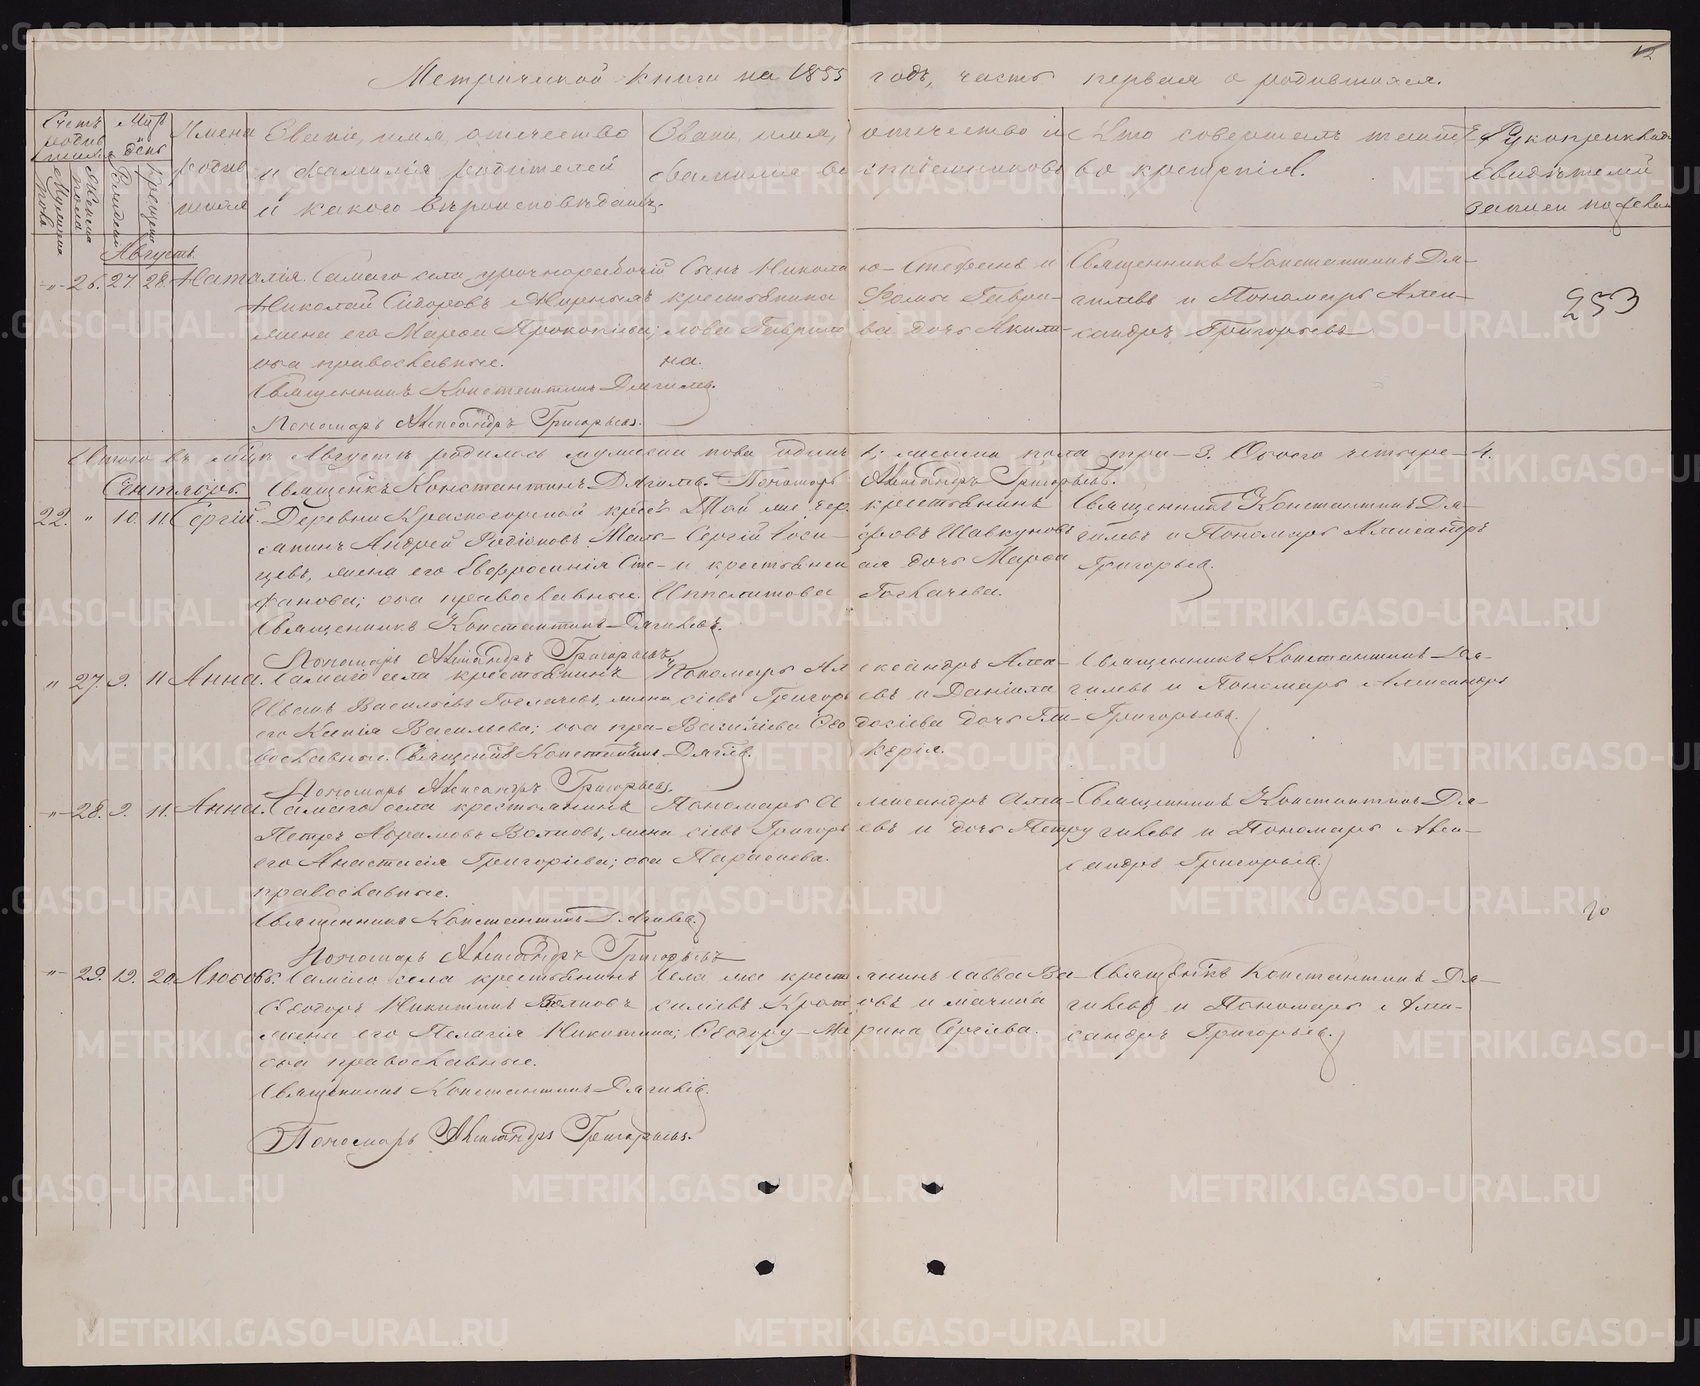 Метрической книги на 1855 годъ, часть первая о родившихся.
Счетъ родившихся
Мужеска пола
Женска пола
Мѣс. и день
Рожденія
Крещенія
Имена родившихся
Званіе, имя, отчество и фамилія родителей и какого вѣроисповѣданія.
Званіе, имя, отчество и фамилія воспріемниковъ
Кто совершалъ таинство крещенія.
Рукоприкладство свидѣтелей записи по желанію
253
Августъ.
26. 27 28. Наталія. Самаго села урочнорабочій
Николай Сидоровъ
жена его Марѳа Прокопіева;
оба православные.
Священникъ Константинъ Дягилевъ.
Пономарь Александръ Григорьевъ.
Сынъ Николаю Стефанъ и
крестьянина Ѳомы Гаври-
лова Гаврилова дочь Акили-
на.
Священникъ Константинъ Дя-
гилевъ и Пономарь Алек-
сандръ Григорьевъ
Итого въ мѣсяцѣ Августѣ родилось мужеска пола одинъ 1; женска пола три – 3. Обоего четыре – 4.
Священникъ Константинъ Дягилевъ. Пономарь Александръ Григорьевъ.
Сентябрь.
22. " 10. 11. Сергій. Деревни Красногорской крест-
Андрей Родіоновъ
жена его Евфросинія Сте-
фанова; оба православные.
Священникъ Константинъ Дягилевъ.
Пономарь Александръ Григорьевъ.
Той же дер. крестьянинъ
Сергій Іоси-
фовъ Шавкуновъ
и крестьянская дочь Марѳа
Ипполитова
Священникъ Константинъ Дя-
гилевъ и Пономарь Александръ
Григорьевъ.
" 27. 9. 11 Анна. Самаго села крестьянинъ
Василіевъ жена
его Ксенія Васильева; оба пра-
вославные. Священникъ Константинъ Дягилевъ.
Пономарь Александръ Григорьевъ.
Пономарь Александръ Алек-
сіевъ Григорьевъ и Даніила
Василіева Евдокіева дочь Гли-
керія.
Священникъ Константинъ Дя-
гилевъ и Пономарь Александръ
Григорьевъ.
" 28. 9. 11. Анна. Самаго села крестьянинъ
Петръ Абрамовъ Волковъ, жена
его Анастасія Григоріева; оба
православные.
Священникъ Константинъ Дягилевъ.
Пономарь Александръ Григорьевъ
Пономарь Александръ Алек-
сіевъ Григорьевъ и дочь Петру
Параскева.
Священникъ Константинъ Дя-
гилевъ и Пономарь Алек-
сандръ Григорьевъ.
" 29. 19. 20 Любовь. Самаго села крестьянинъ
Ѳеодоръ Никитинъ Волковъ
жена его Пелагія Никитина;
оба православные.
Священникъ Константинъ Дягилевъ.
Пономарь Александръ Григорьевъ.
Села же крестьянинъ Савва Ва-
силіевъ и мачиха
Ѳеодору – Марина Сергіева.
Священникъ Константинъ Дя-
гилевъ и Пономарь Алек-
сандръ Григорьевъ.
METRIKI.GASO-URAL.RU